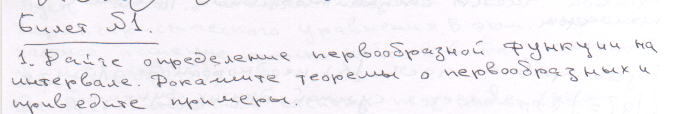 Билет №1.
1. Дайте определение первообразной функции на
интервале. Докажите теоремы о первообразных и
приведите примеры.